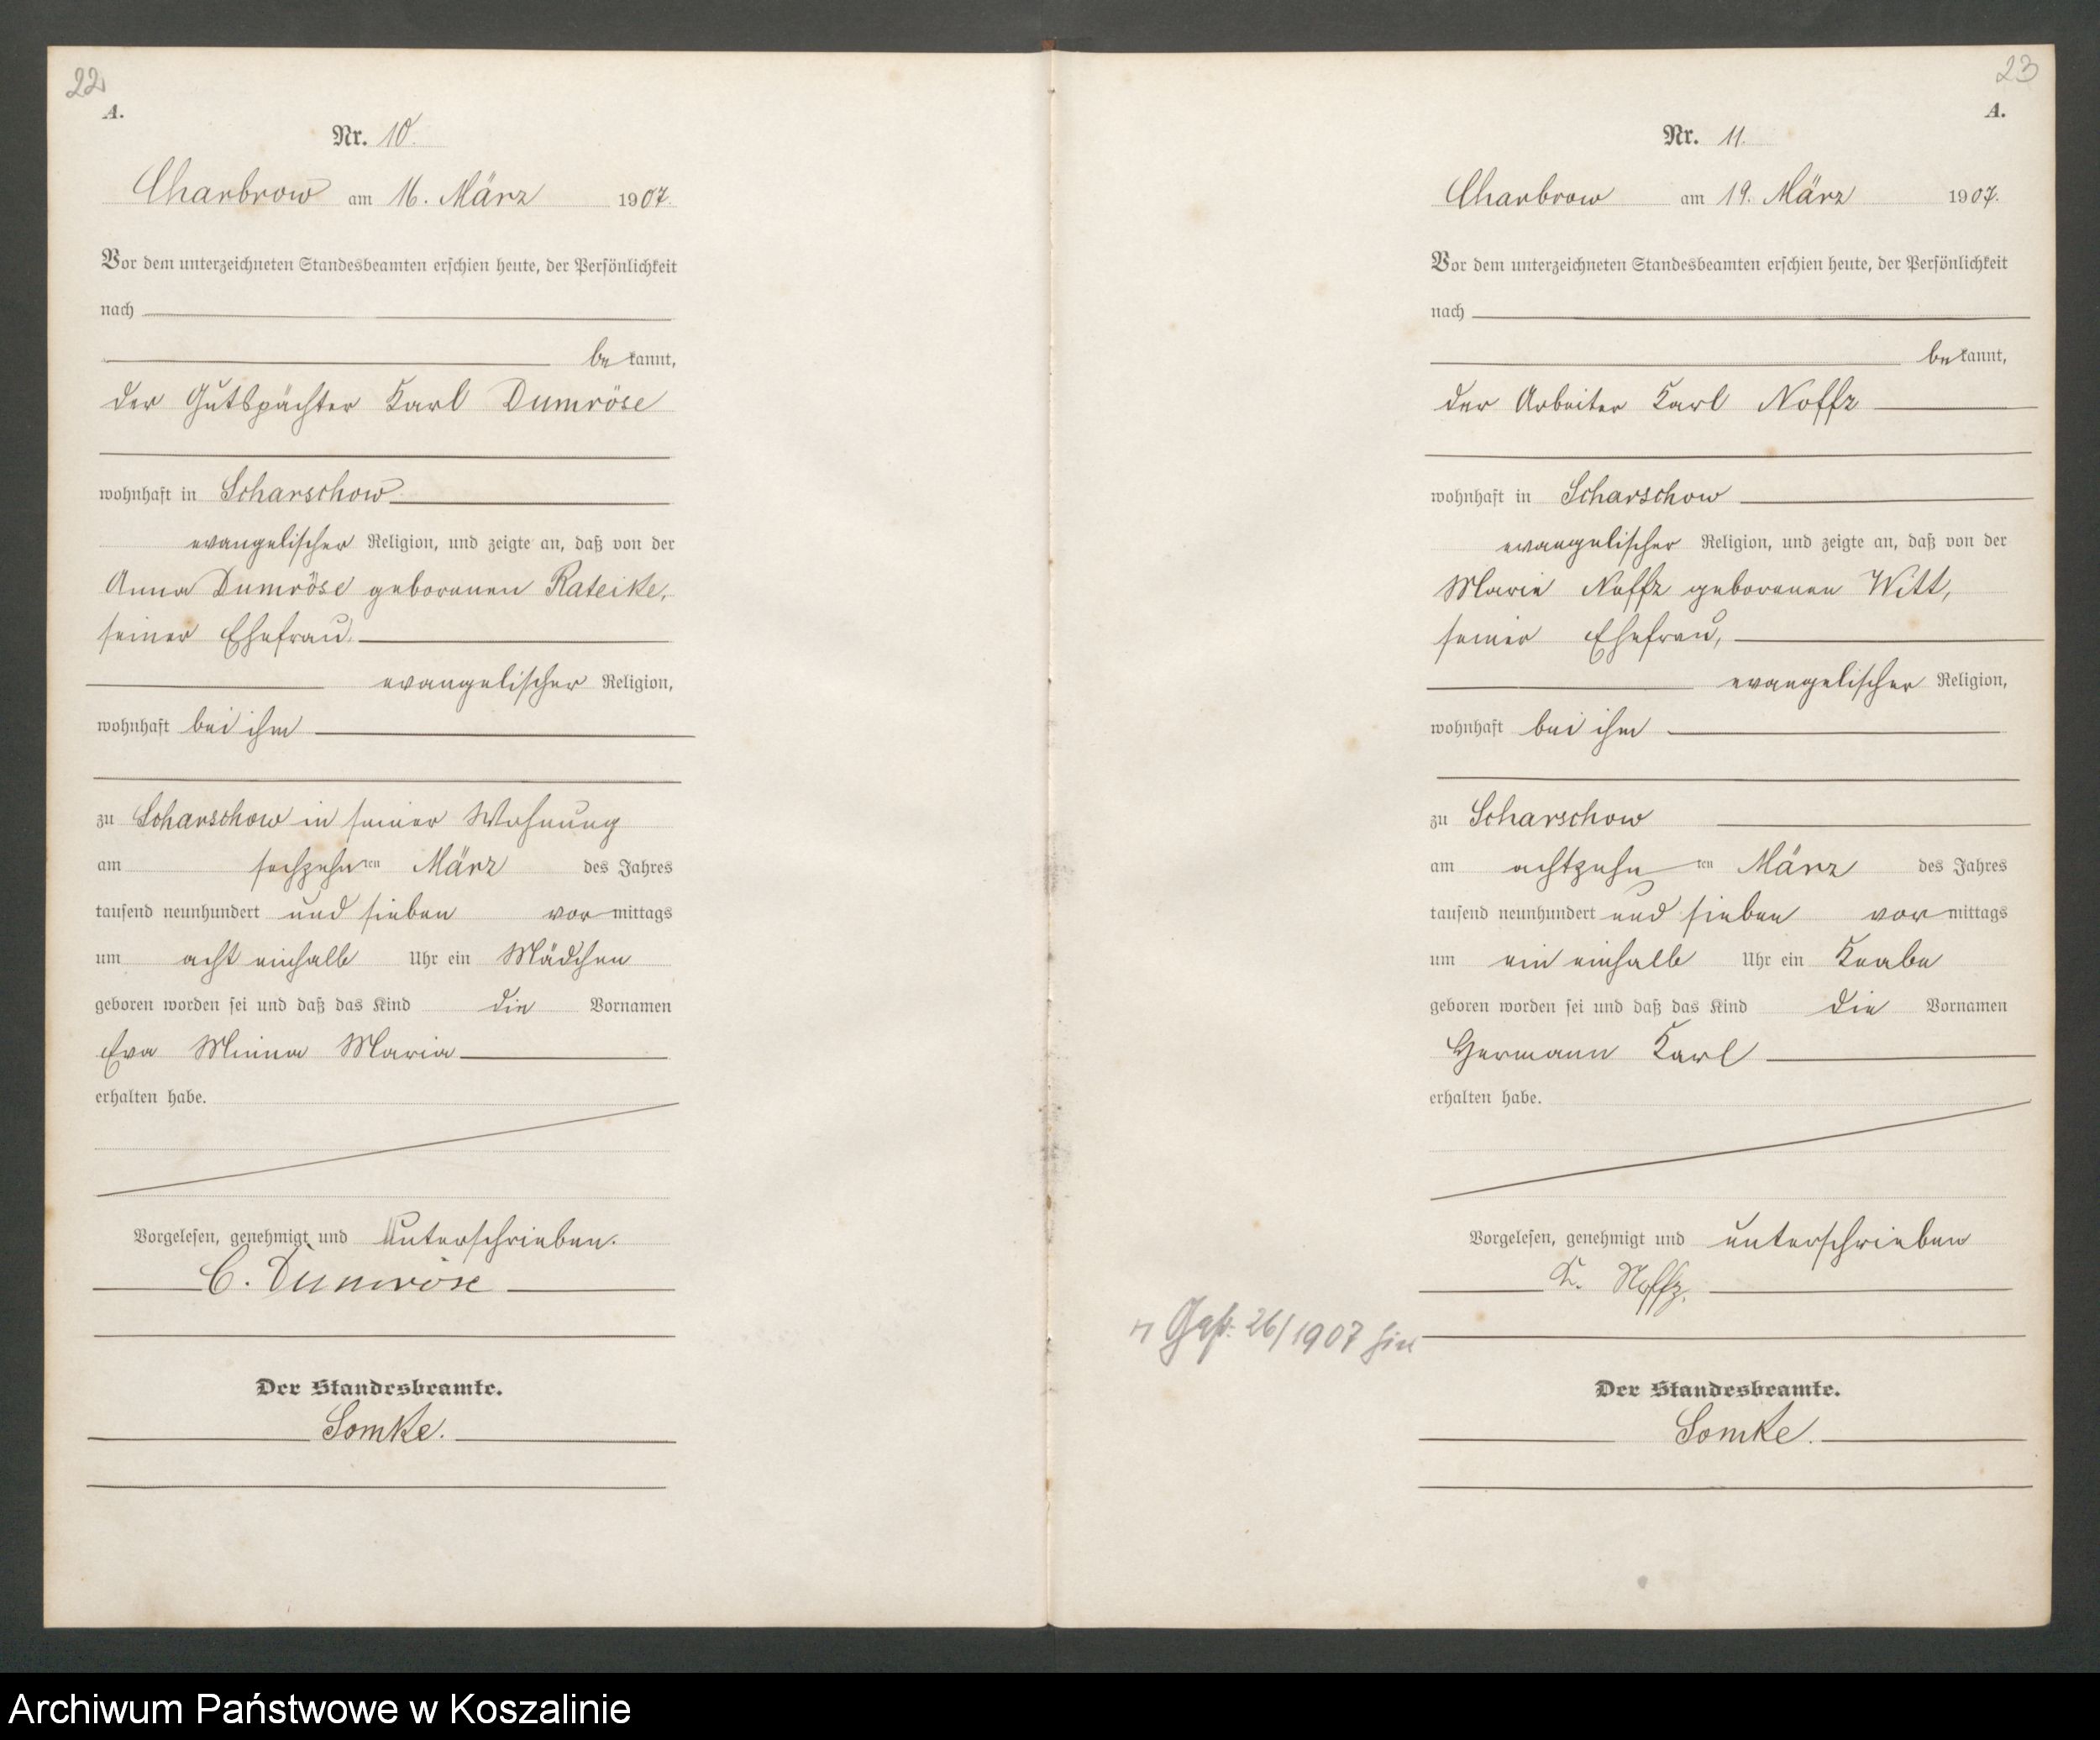 22
A.
Nr. 10.
Charbrow am 16. März 1907.
Vor dem unterzeichneten Standesbeamten erschien heute, der Persönlichkeit
nach
bekannt,
der Gutspächter Karl Dumröse
wohnhaft in Scharschow
evangelischer Religion, und zeigte an, daß von der
Anna Dumröse geborenen Rateike,
seiner Ehefrau,
evangelischer Religion,
wohnhaft bei ihm
zu Scharschow in seiner Wohnung
am sechzehnten März des Jahres
tausend neunhundert und sieben vormittags
um acht einhalb Uhr ein Mädchen
geboren worden sei und daß das Kind die Vornamen
Eva Minna Maria
erhalten habe.
Vorgelesen, genehmigt und unterschrieben.
C. Dumröse
Der Standesbeamte.
Somke.
23
A.
Nr. 11.
Charbrow am 19. März 1907.
Vor dem unterzeichneten Standesbeamten erschien heute, der Persönlichkeit
nach
bekannt,
der Arbeiter Karl Noffz
wohnhaft in Scharschow
evangelischer Religion, und zeigte an, daß von der
Marie Noffz geborenen Witt,
seiner Ehefrau,
evangelischer Religion,
wohnhaft bei ihm
zu Scharschow
am achtzehnten März des Jahres
tausend neunhundert und sieben vormittags
um ein einhalb Uhr ein Knabe
geboren worden sei und daß das Kind die Vornamen
Hermann Karl
erhalten habe.
Vorgelesen, genehmigt und unterschrieben
K. Noffz.
26/1907 hier
Der Standesbeamte.
Somke.
Archiwum Państwowe w Koszalinie